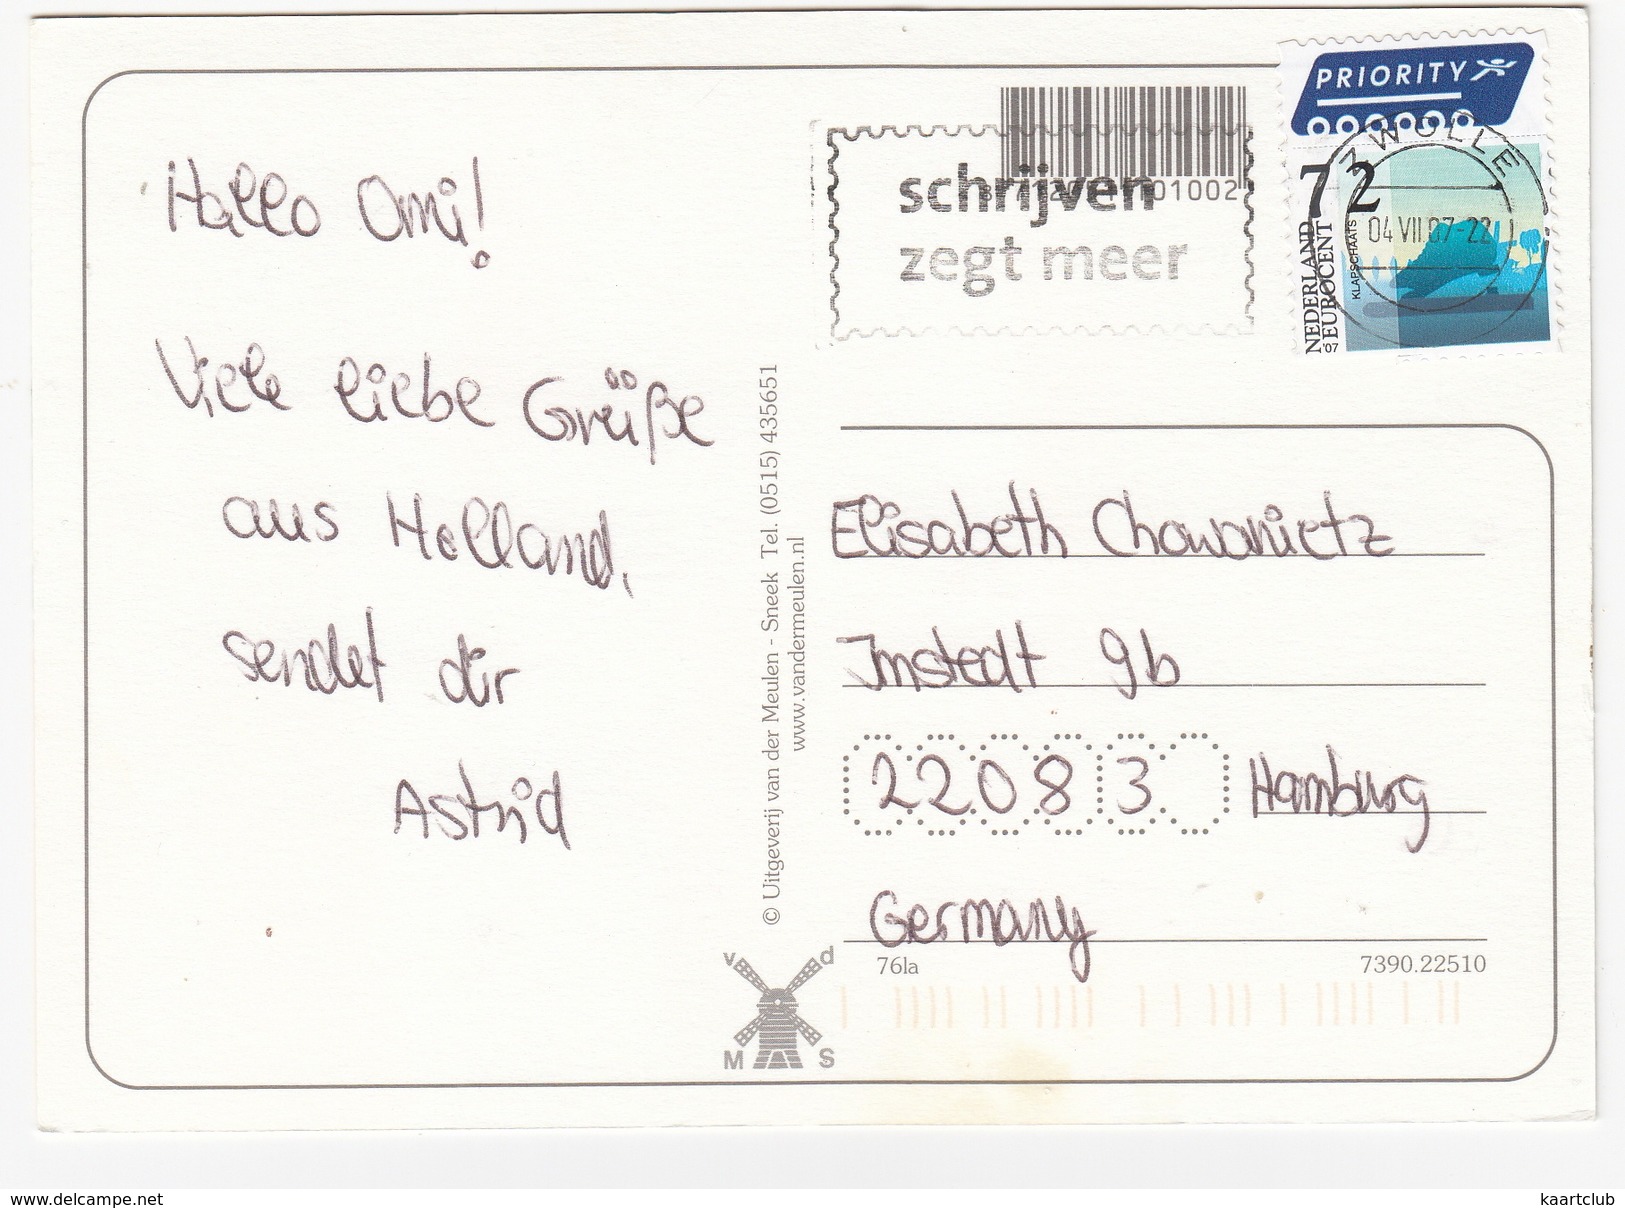 Hallo Omi!
Viele liebe Grüße
aus Holland,
sendet dir
Astrid
© Uitgeverij van der Meulen - Sneek Tel. (0515) 435651
www.vandermeulen.nl
v d
M S
schrijven
zegt meer
01002
PRIORITY
72
NEDERLAND
EUROCENT
KLAPSCHAATS
'07
ZWOLLE
04 VII.07-22
Elisabeth Chowanietz
Imstedt 9b
22083 Hamburg
Germany
76la
7390.22510
www.delcampe.net
kaartclub